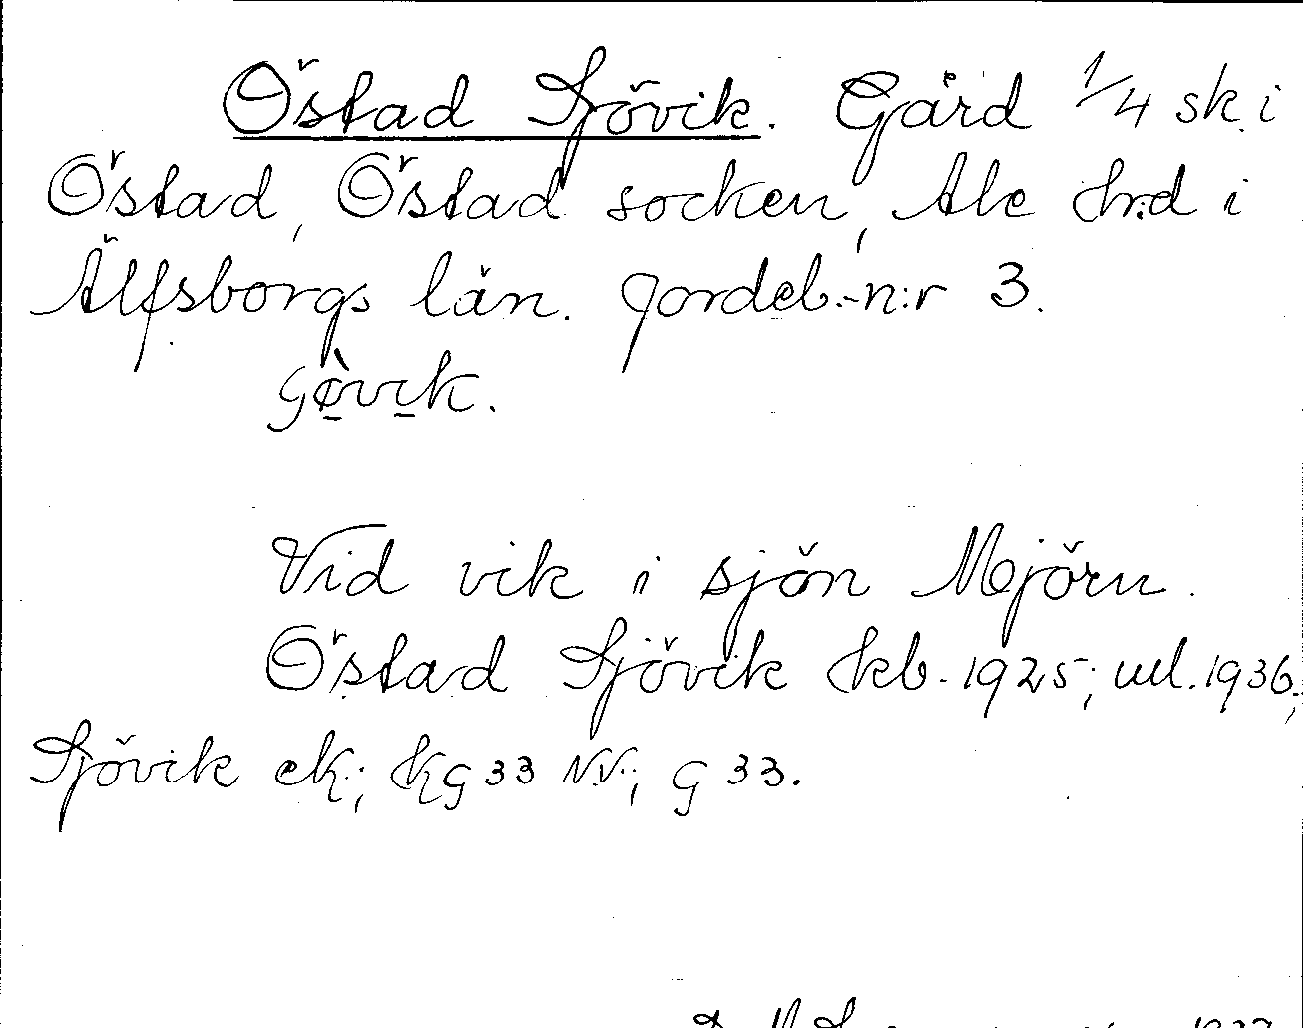 Östad Sjövik. Gård 1/4 sk. i
Östad, Östad socken, Ale hrd i
Älfsborgs län. Jordeb.-n:r 3.
Vid vik i sjön Mjörn.
Östad Sjövik hkb. 1925; ml. 1936;
Sjövik ek.; KG 33 NV.; G 33.